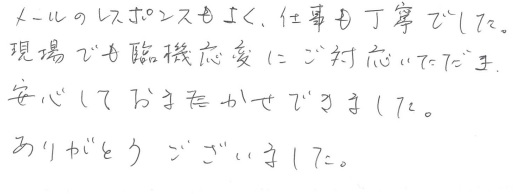 メールのレスポンスもよく、仕事も丁寧でした。
現場でも臨機応変にご対応いただき、
安心しておまかせできました。
ありがとうございました。